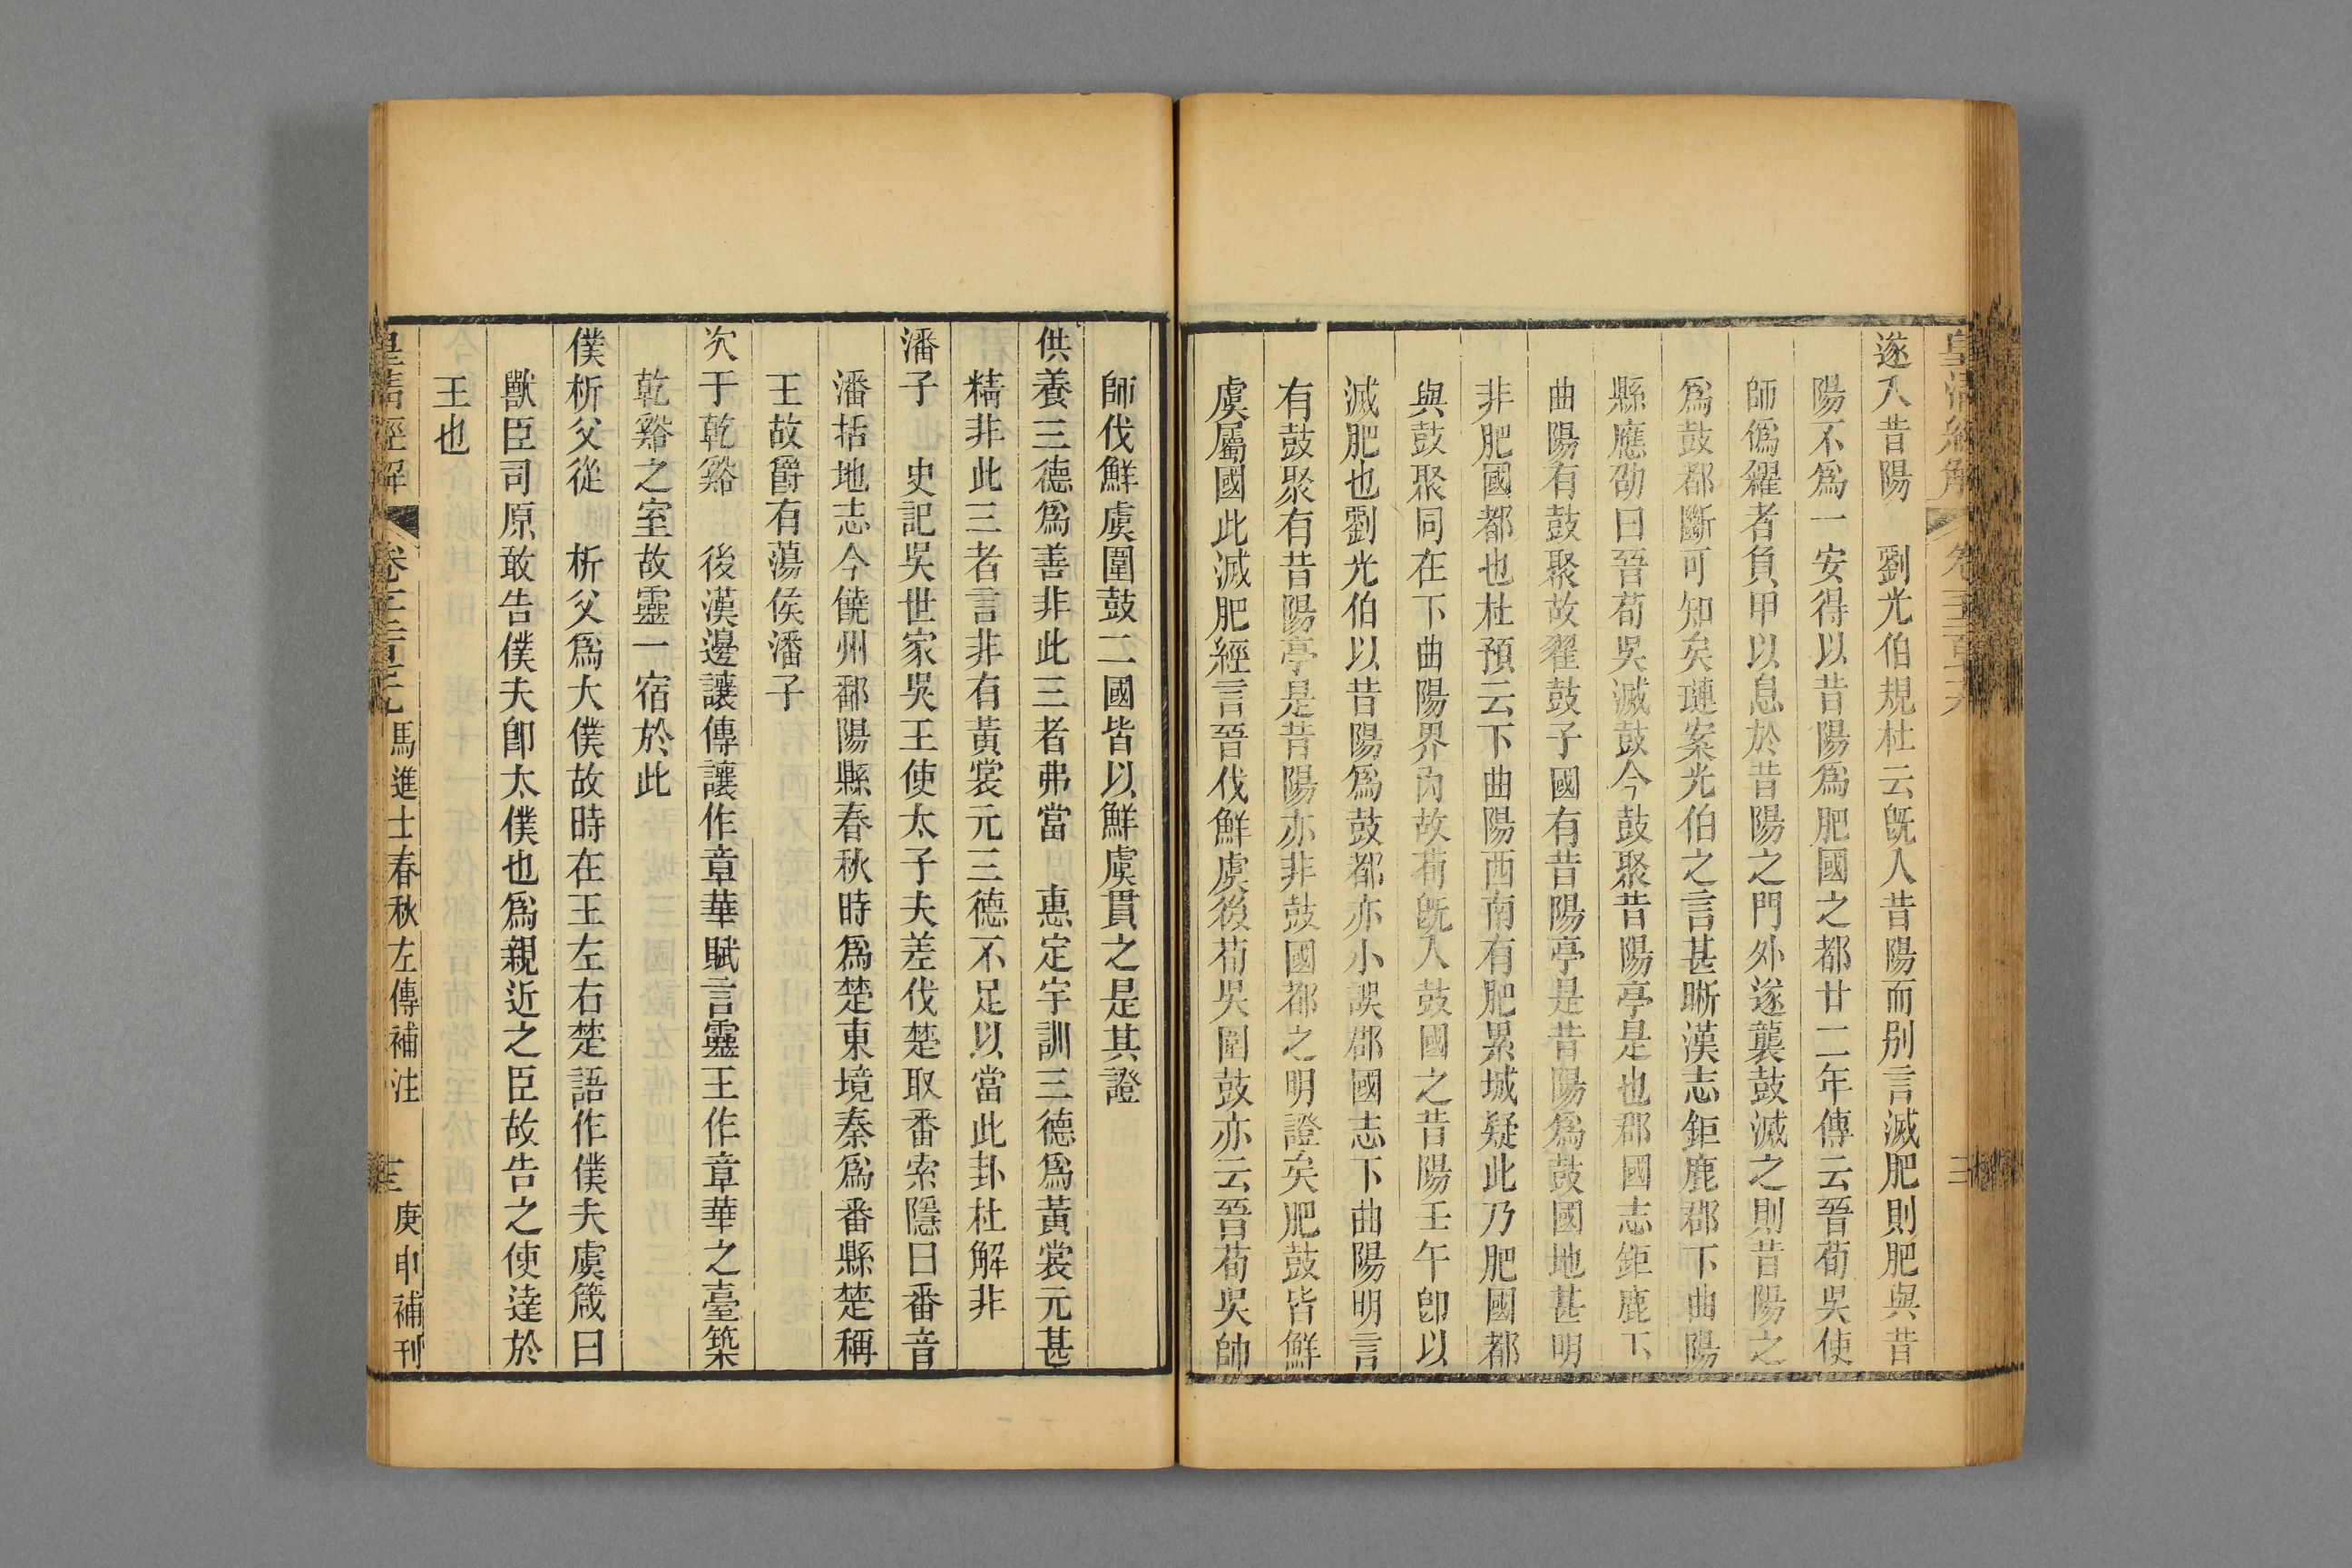 皇清經解
遂入昔陽　劉光伯規杜云旣入昔陽而別言滅肥則肥與昔
陽不爲一安得以昔陽爲肥國之都廿二年傳云晉荀吳使
師僞糴者負甲以息於昔陽之門外遂襲鼓滅之則昔陽之
爲鼓都斷可知矣璉案光伯之言甚晰漢志鉅鹿郡下曲陽
縣應劭曰晉荀吳滅鼓今鼓聚昔陽亭是也郡國志鉅鹿下
曲陽有鼓聚故翟鼓子國有昔陽亭是昔陽爲鼓國地甚明
非肥國都也杜預云下曲陽西南有肥累城疑此乃肥國都
與鼓聚同在下曲陽界內故荀旣入鼓國之昔陽壬午卽以
滅肥也劉光伯以昔陽爲鼓都亦小誤郡國志下曲陽明言
有鼓聚有昔陽亭是昔陽亦非鼓國都之明證矣肥鼓皆鮮
虞屬國此滅肥經言晉伐鮮虞後荀吳圍鼓亦云晉荀吳帥
師伐鮮虞圍鼓二國皆以鮮虞貫之是其證
供養三德爲善非此三者弗當　惠定宇訓三德爲黃裳元甚
精非此三者言非有黃裳元三德不足以當此卦杜解非
潘子　史記吳世家吳王使太子夫差伐楚取番索隱曰番音
潘括地志今饒州鄱陽縣春秋時爲楚東境秦爲番縣楚稱
王故爵有蕩侯潘子
次于乾谿　後漢邊讓傳讓作章華賦言靈王作章華之臺築
乾谿之室故靈一宿於此
僕析父從　析父爲大僕故時在王左右楚語作僕夫虞箴曰
獸臣司原敢告僕夫卽太僕也爲親近之臣故告之使達於
王也
皇清經解　馬進士春秋左傳補注　庚申補刊